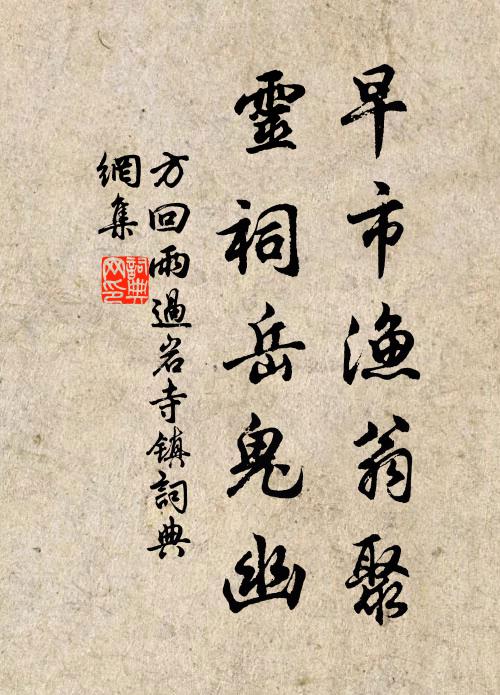 早市漁翁聚
靈祠岳鬼幽
方回雨過岩寺镇詞典
網集
詞典網印